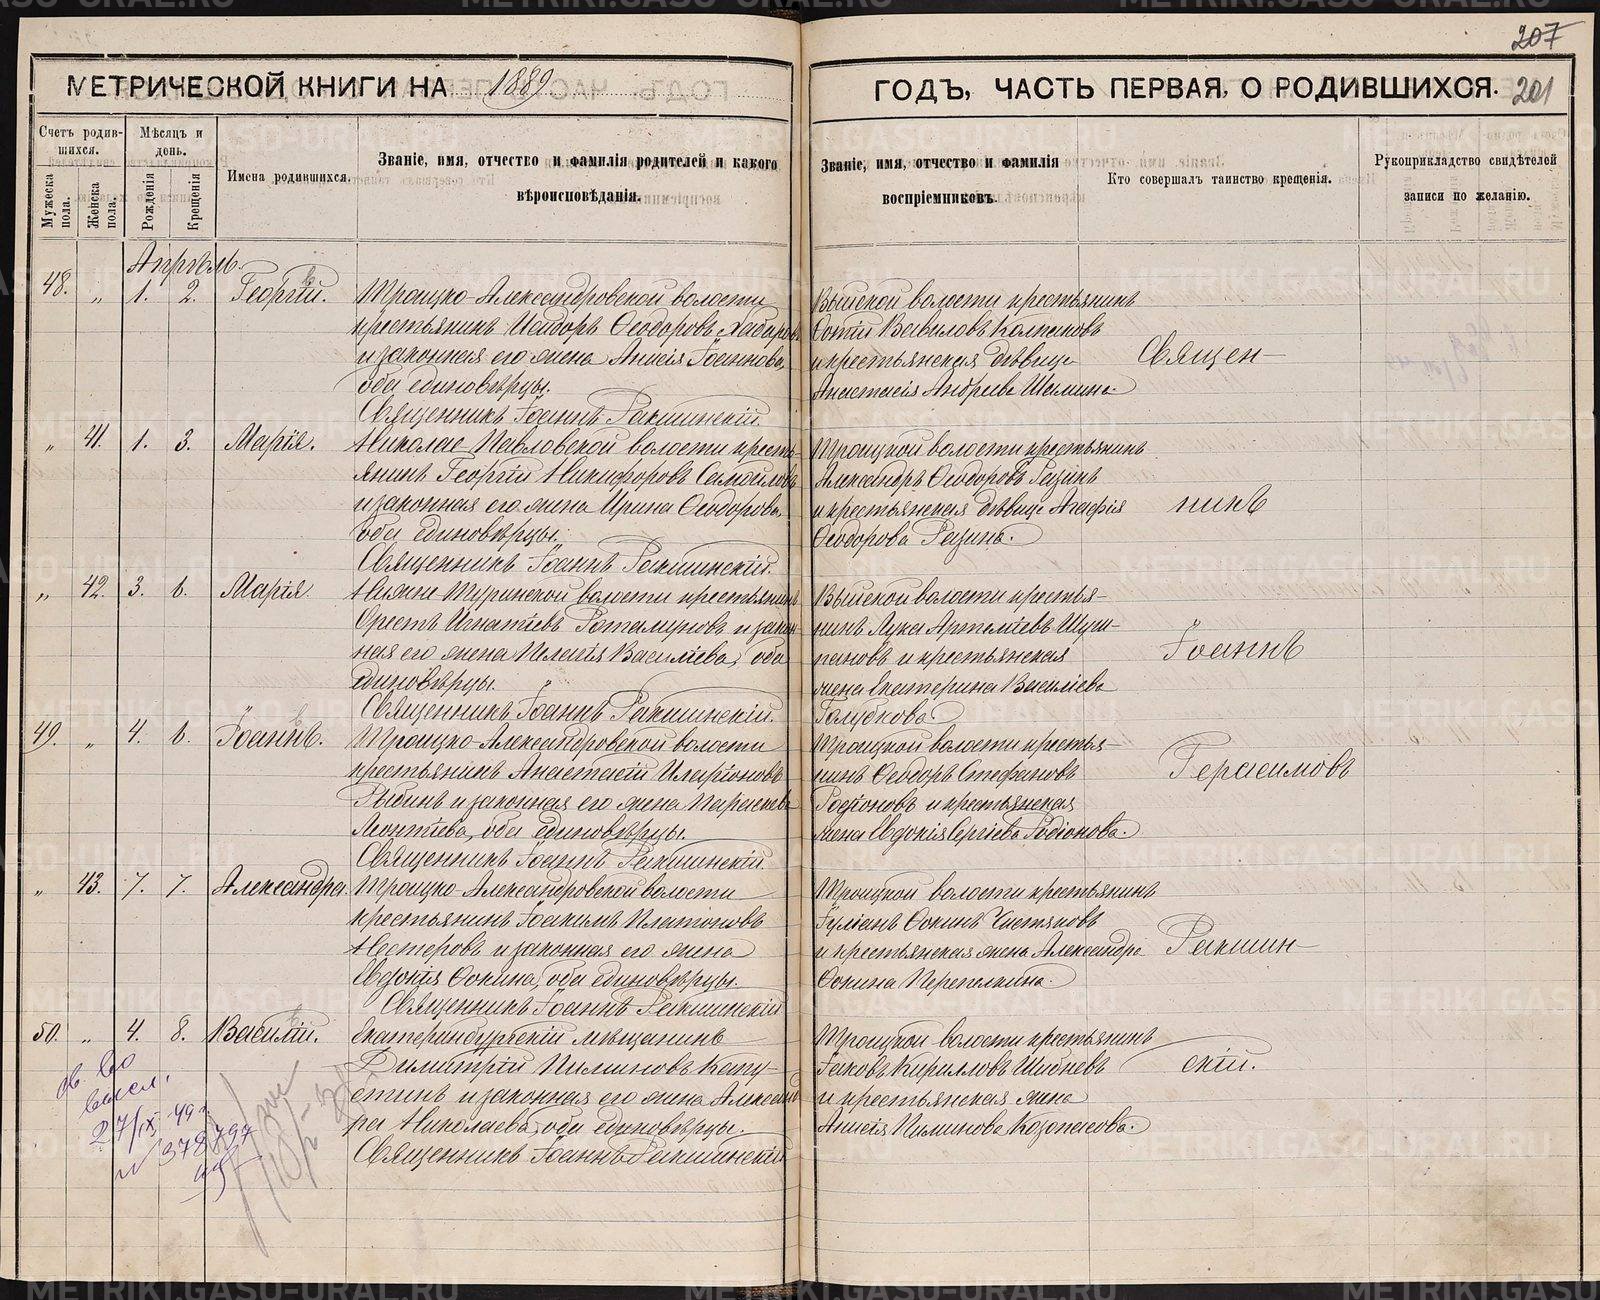 207
МЕТРИЧЕСКОЙ КНИГИ НА 1889
ГОДЪ, ЧАСТЬ ПЕРВАЯ, О РОДИВШИХСЯ.
201
Счетъ родившихся.
Мужеска пола.
Женска пола.
Мѣсяцъ и день.
Рожденія
Крещенія
Имена родившихся.
Званіе, имя, отчество и фамилія родителей и какого
вѣроисповѣданія.
Званіе, имя, отчество и фамилія
воспріемниковъ.
Кто совершалъ таинство крещенія.
Рукоприкладство свидѣтелей
записи по желанію.
Апрѣль.
48. „ 1. 2. Георгій. Троицко-Александровской волости
крестьянинъ Исидоръ Ѳеодоровъ
и законная его жена Анисія Іоаннова,
оба единовѣрцы.
Священникъ Іоаннъ Ракшинскій.
Выйской волости крестьянинъ
Фотій Вавиловъ Колпаковъ
и крестьянская дѣвица
Анастасія Андреева Шалина.
Священ-
„ 41. 1. 3. Марія. Николае-Павловской волости кресть-
янинъ Георгій Никифоровъ Самойловъ
и законная его жена Ирина Ѳеодорова,
оба единовѣрцы.
Священникъ Іоаннъ Ракшинскій.
Троицкой волости крестьянинъ
Александръ Ѳеодоровъ Рязинъ
и крестьянская дѣвица Агафія
Ѳеодорова Рязина.
никъ
„ 42. 3. 6. Марія. Нижне Туринской волости крестьянинъ
Орестъ Игнатіевъ и закон-
ная его жена Пелагія Василіева, оба
единовѣрцы.
Священникъ Іоаннъ Ракшинскій.
Выйской волости крестья-
нинъ Лука Артеміевъ Щуш-
пановъ и крестьянская
жена Екатерина Василіева
Голубкова
Іоаннъ
49. „ 4. 6. Іоаннъ. Троицко-Александровской волости
крестьянинъ Анастасій Иларіоновъ
Рыбинъ и законная его жена Параскева
Леонтіева, оба единовѣрцы.
Священникъ Іоаннъ Ракшинскій.
Троицкой волости крестья-
нинъ Ѳеодоръ Стефановъ
Родіоновъ и крестьянская
жена Евдокія Сергіева Родіонова.
Герасимовъ
„ 43. 7. 7. Александра. Троицко-Александровской волости
крестьянинъ Іоакимъ Платоновъ
Нестеровъ и законная его жена
Евдокія Фокина, оба единовѣрцы.
Священникъ Іоаннъ Ракшинскій
Троицкой волости крестьянинъ
Іуліанъ Фокинъ Чистяковъ
и крестьянская жена Александра
Фокина Перепелкина.
Ракшин-
50. „ 4. 8. Василій. Екатеринбургскій мѣщанинъ
Димитрій Пиминовъ Капу-
стинъ и законная его жена Александ
ра Николаева, оба единовѣрцы.
Священникъ Іоаннъ Ракшинскій
Троицкой волости крестьянинъ
Іаковъ Кирилловъ Шибневъ
и крестьянская жена
Анисія Пиминова Козопасова.
скій.
св во
высл.
27/IX-49 г
№ 378797
METRIKI.GASO-URAL.RU